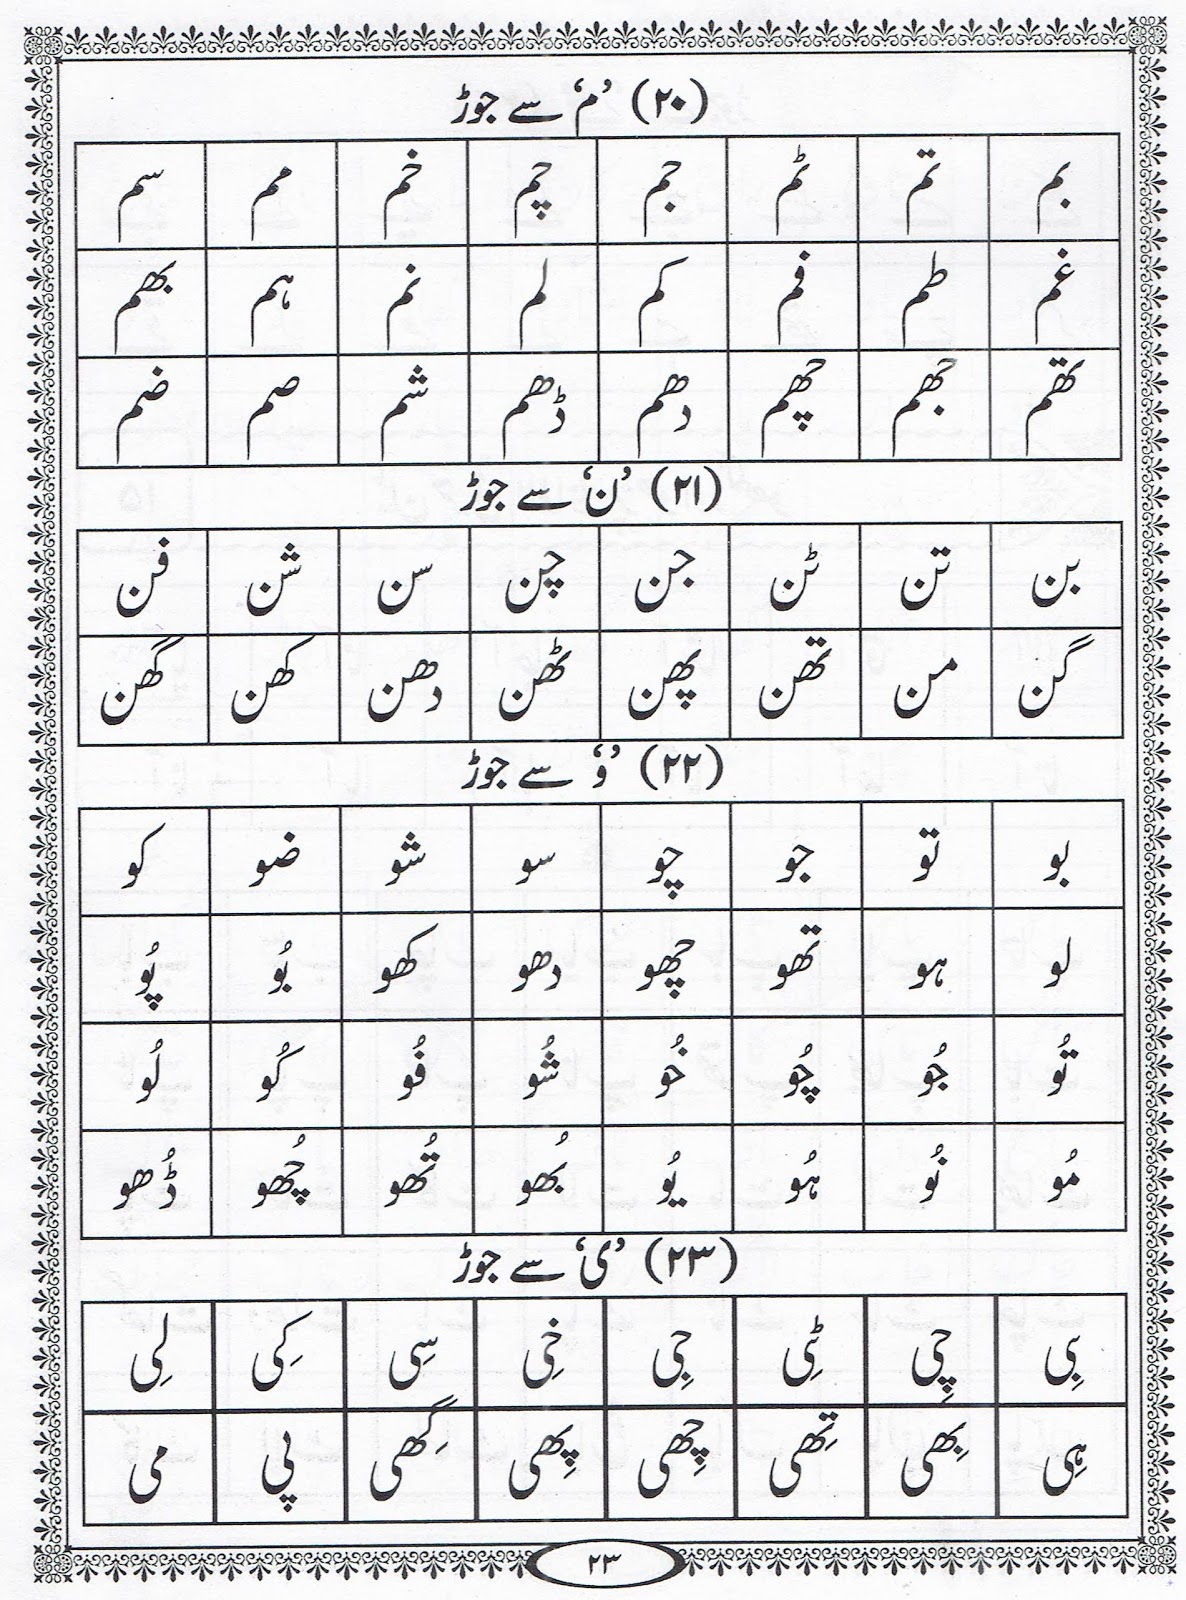 (۲۰) ’م‘ سے جوڑ
بم تم ٹم جم چم خم مم سم
غم طم فم کم لم نم ہم بھم
تھم جھم چھم دھم ڈھم شم صم ضم
(۲۱) ’ن‘ سے جوڑ
بن تن ٹن جن چن سن شن فن
گن من تھن پھن ٹھن دھن کھن گھن
(۲۲) ’و‘ سے جوڑ
بو تو جو چو سو شو ضو کو
لو ہو تھو چھو دھو کھو بُو پُو
تُو جُو چُو خُو شُو فُو کُو لُو
مُو نُو ہُو یُو بُھو تُھو چُھو ڈُھو
(۲۳) ’ی‘ سے جوڑ
بِی چِی ٹِی جِی خِی سِی کِی لِی
ہِی بِھی تِھی چِھی پِھی گِھی پی می
۲۳